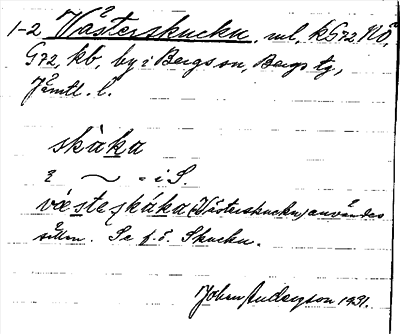 1-2 Västerskucku, ml, kG72 NO,
G72, kb, by i Bergs sn, Bergs tg,
Jämtl. l.
skàka
2 ~ = i S.
västeskáka (Västerskucku) användes
sällan. Se f.ö. Skucku.
John Andersson 1931.